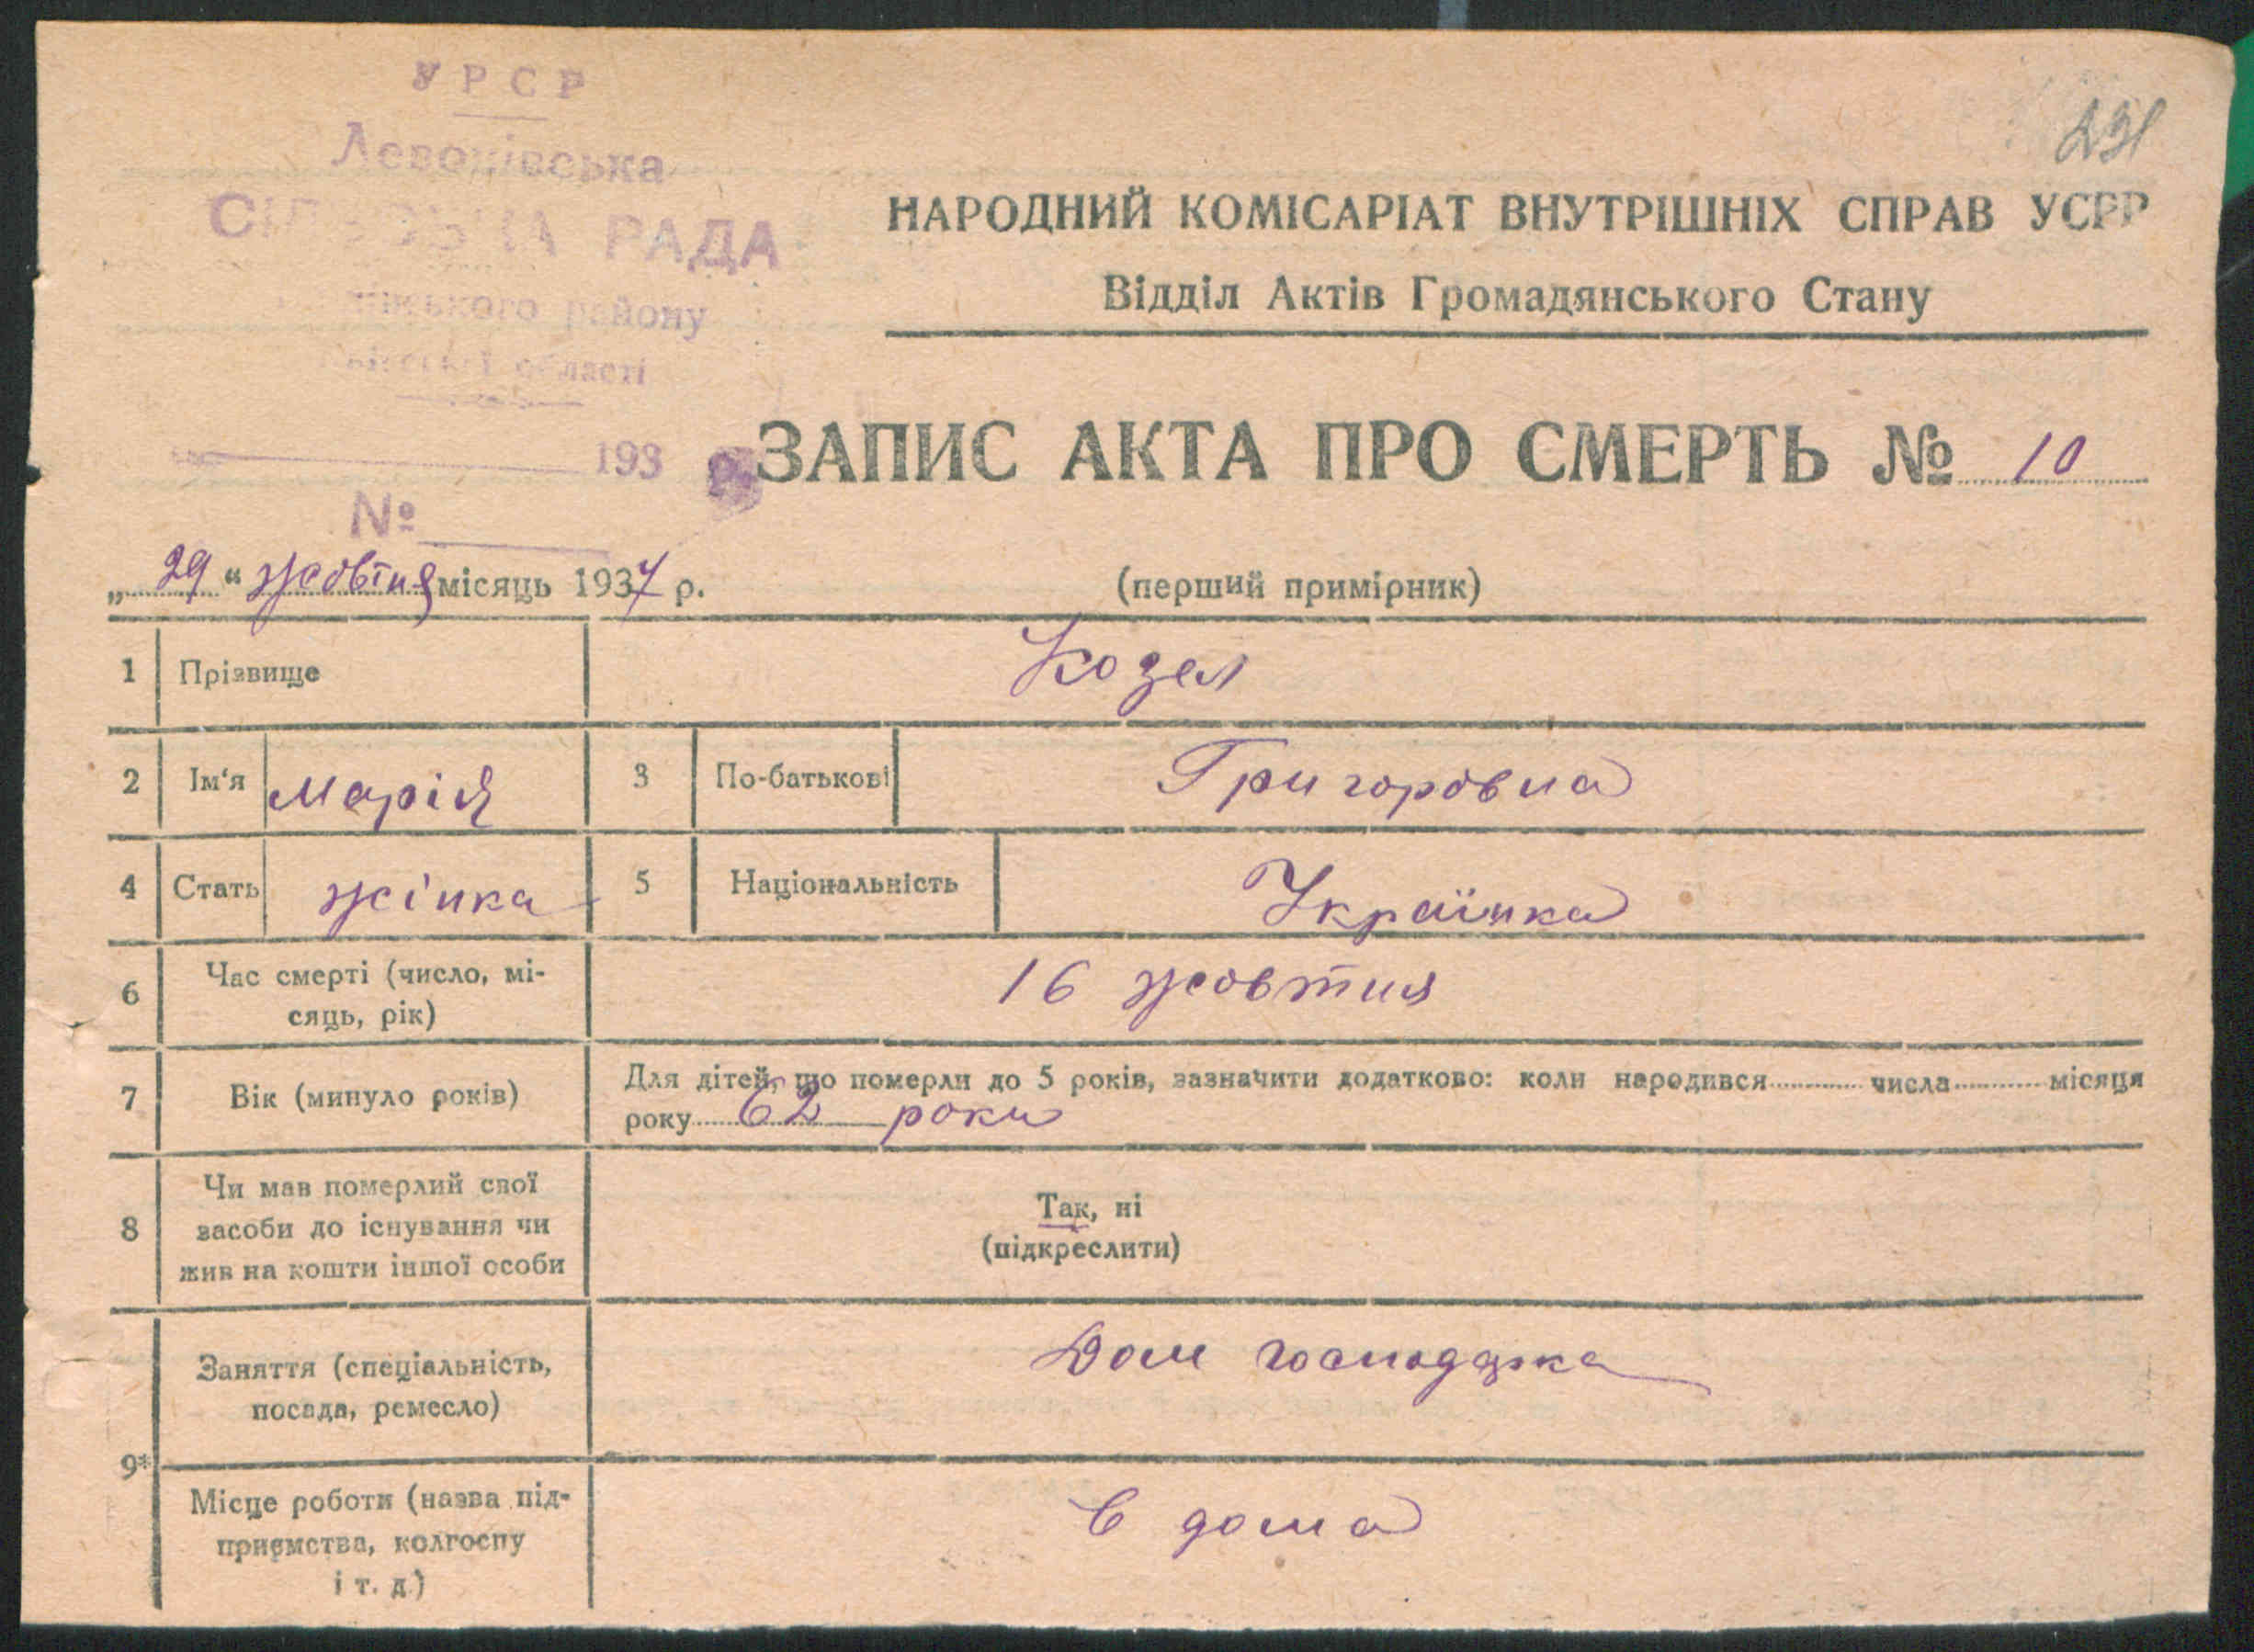 УРСР
231
СІЛЬСЬКА РАДА
НАРОДНИЙ КОМІСАРІАТ ВНУТРІШНІХ СПРАВ УСРР
району
Відділ Актів Громадянського Стану
області
193 р.
ЗАПИС АКТА ПРО СМЕРТЬ № 10
№
„29“ жовтня місяць 1937 р.
(перший примірник)
1 Прізвище Козел
2 Ім'я Марія 3 По-батькові Григоровна
4 Стать жінка 5 Національність Українка
6 Час смерті (число, мі-
сяць, рік)
16 жовтня
7 Вік (минуло років)
Для дітей, що померли до 5 років, зазначити додатково: коли народився числа місяця
року 62 роки
8 Чи мав померлий свої
засоби до існування чи
жив на кошти іншої особи
Так, ні
(підкреслити)
9*
Заняття (спеціальність,
посада, ремесло)
Дом господарка
Місце роботи (назва під-
приємства, колгоспу
і т. д.)
в дома